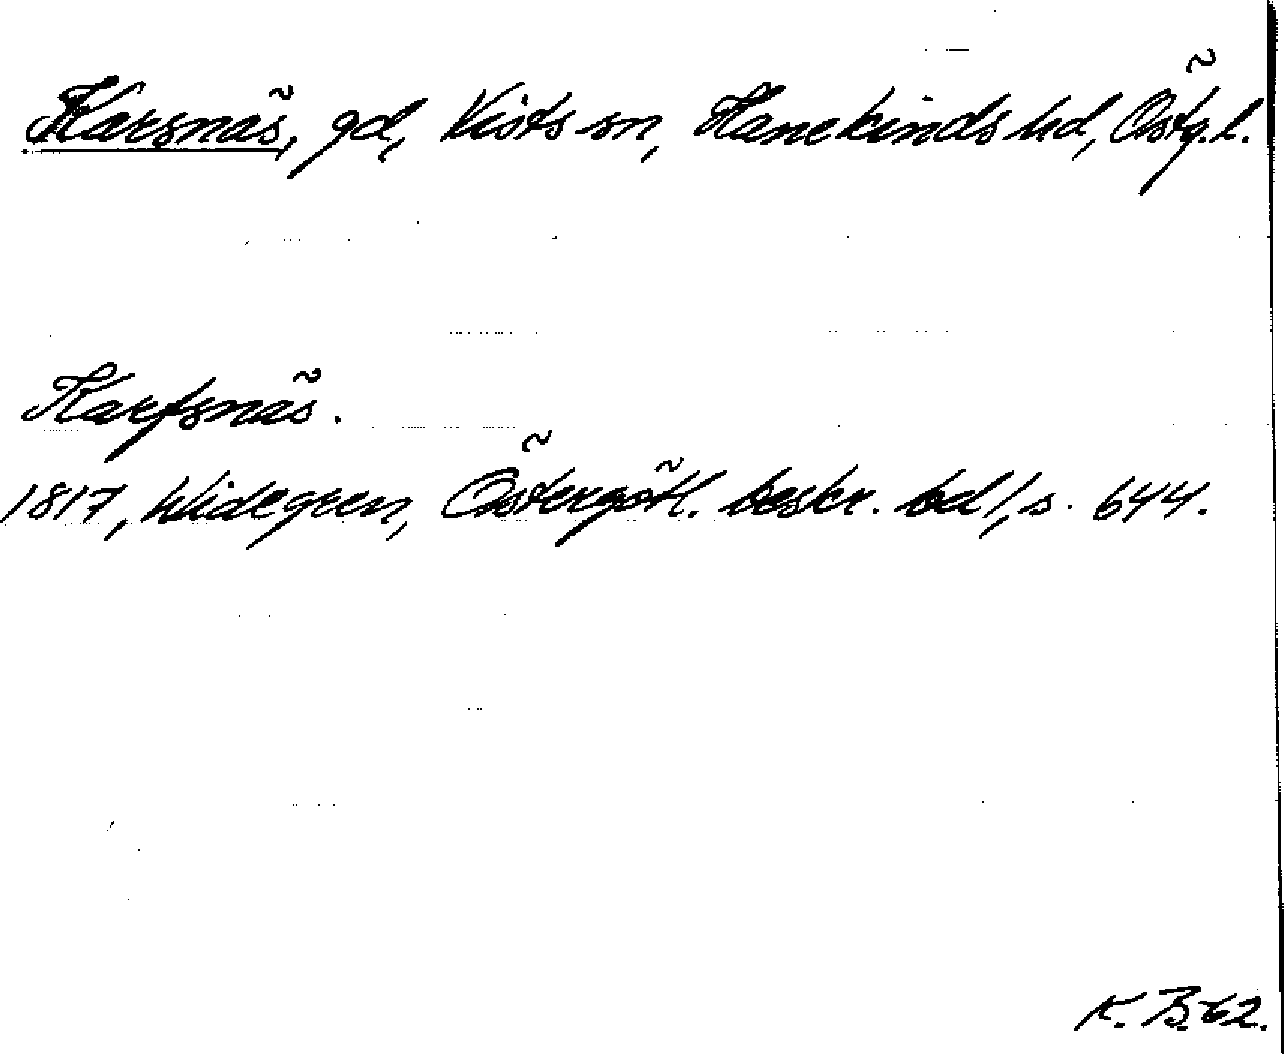 Karsnäs, gd, Vists sn, Hanekinds hd, Östg.l.
Karfsnäs.
1817, Widegren, Östergötl. beskr. bd 1, s. 644.
K. B. 62.